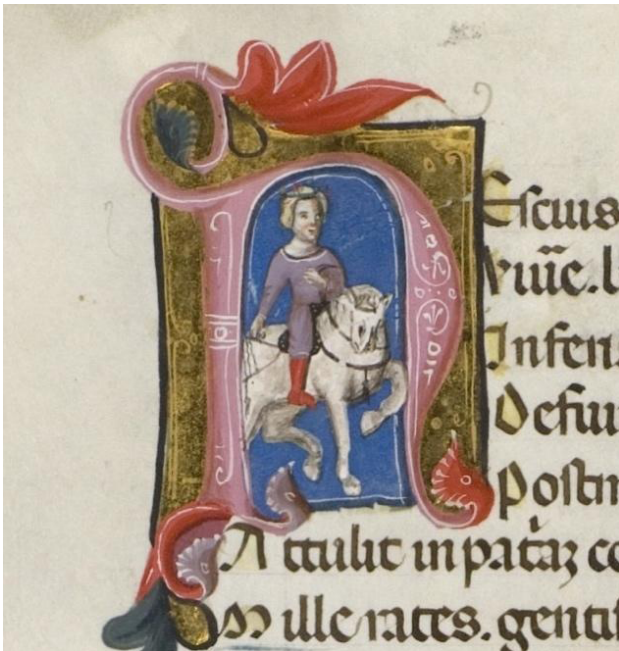 NEscius
Viu̅e. l
Inferi
Defui
Postm
Attulit in pat̉aʒ co
Mille rates. gentis